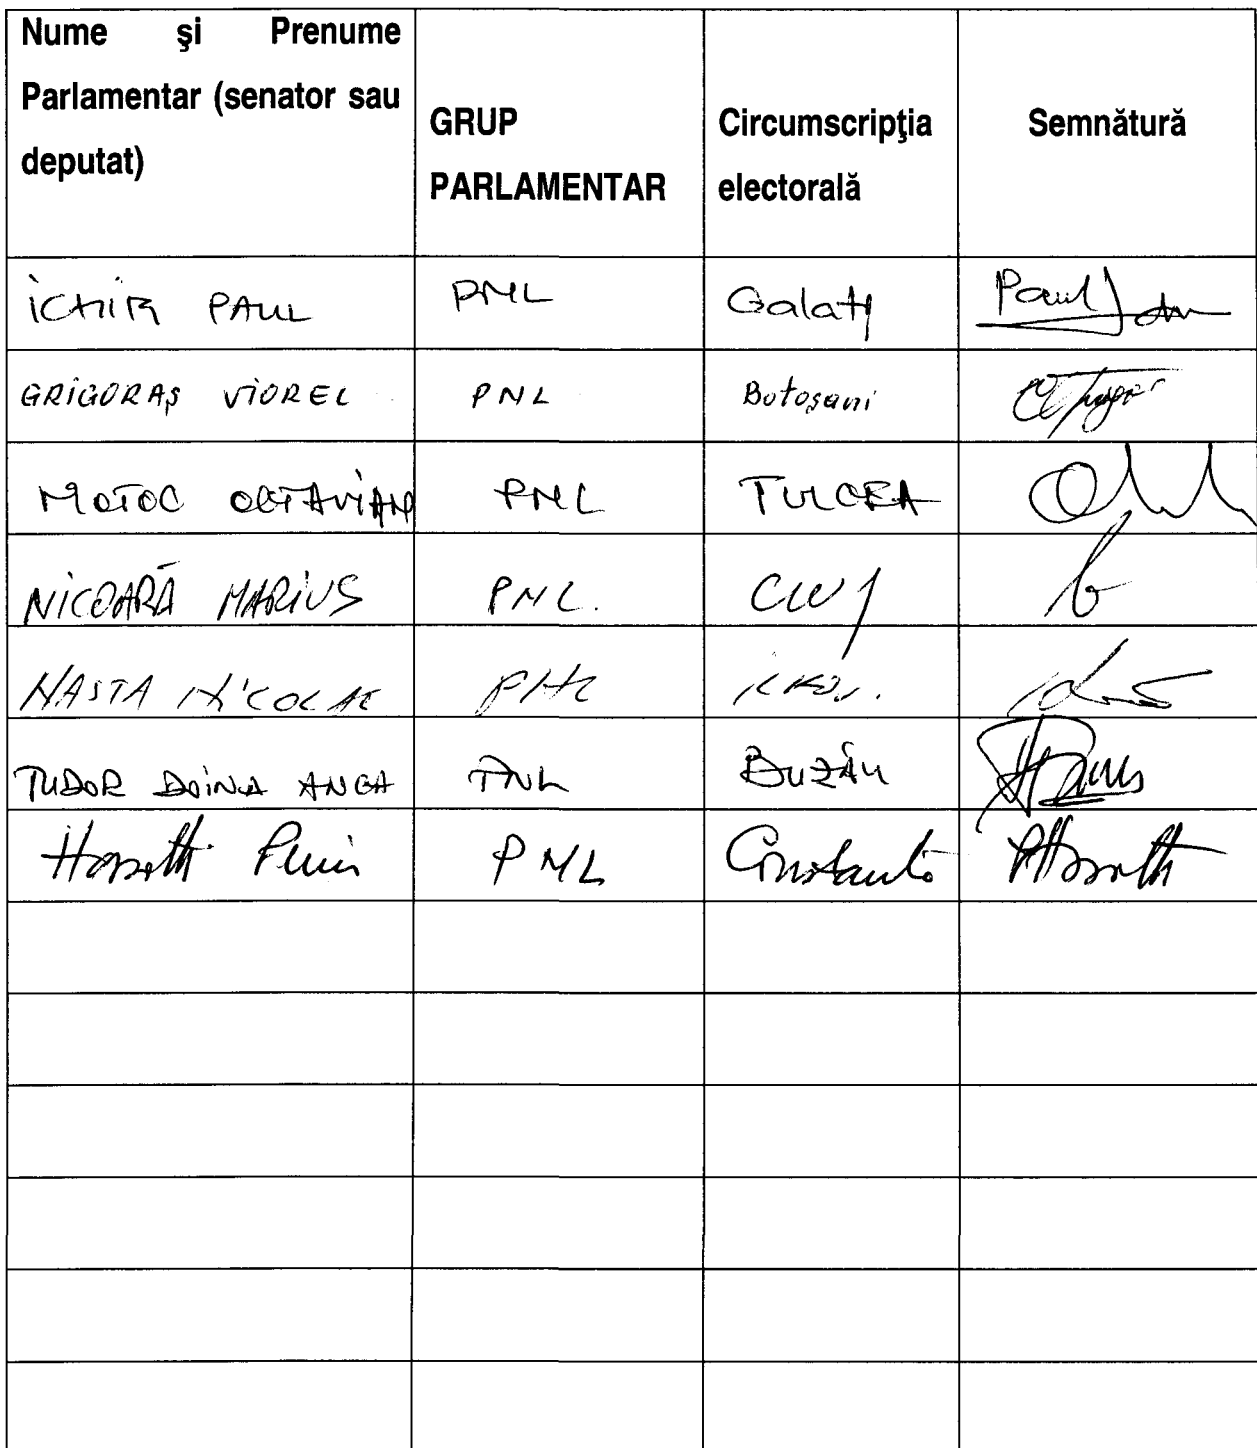 Nume şi Prenume
Parlamentar (senator sau
deputat)
GRUP
PARLAMENTAR
Circumscripţia
electorală
Semnătură
ICHIM PAUL PNL Galaţi Paul
GRIGORAŞ VIOREL PNL Botoşani
MOTOC OCTAVIAN PNL TULCEA
NICOARĂ MARIUS PNL. CLUJ
NASTA NICOLAE PNL
TUDOR DOINA ANCA PNL BUZĂU
PNL Constanţa